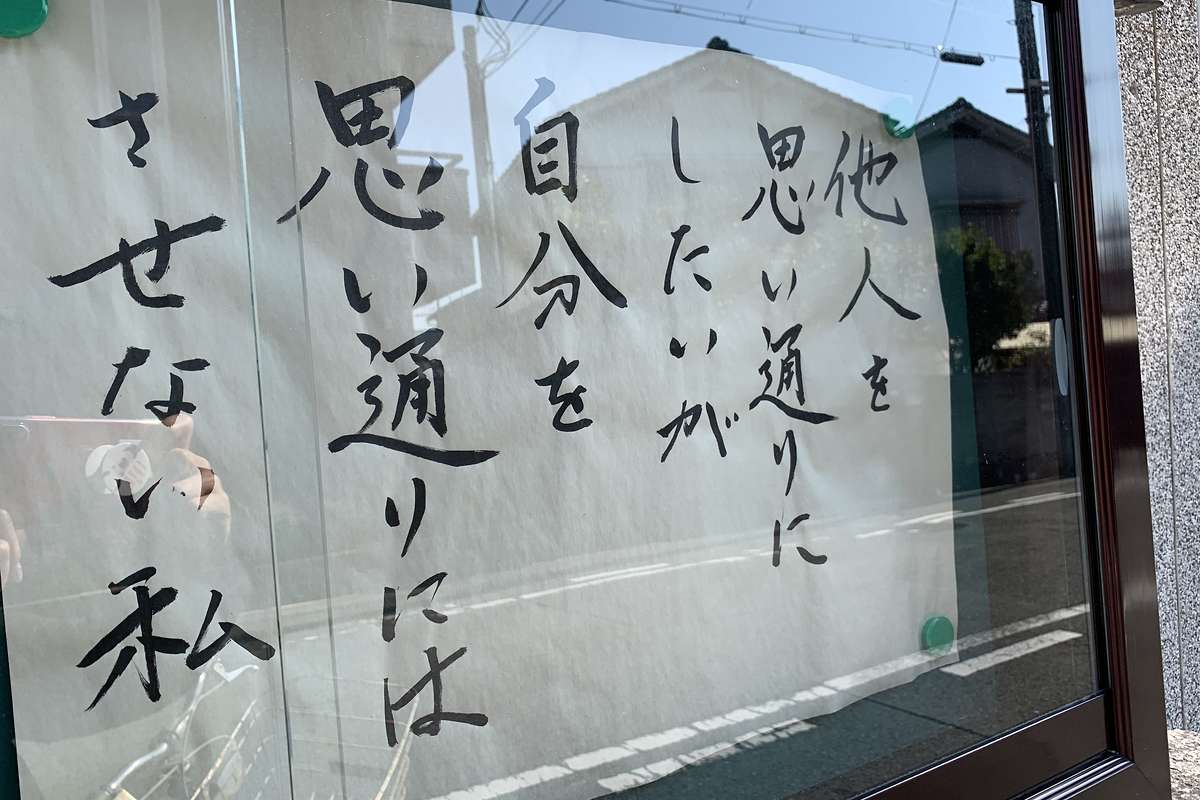 他人を
思い通りに
したいが
自分を
思い通りには
させない私